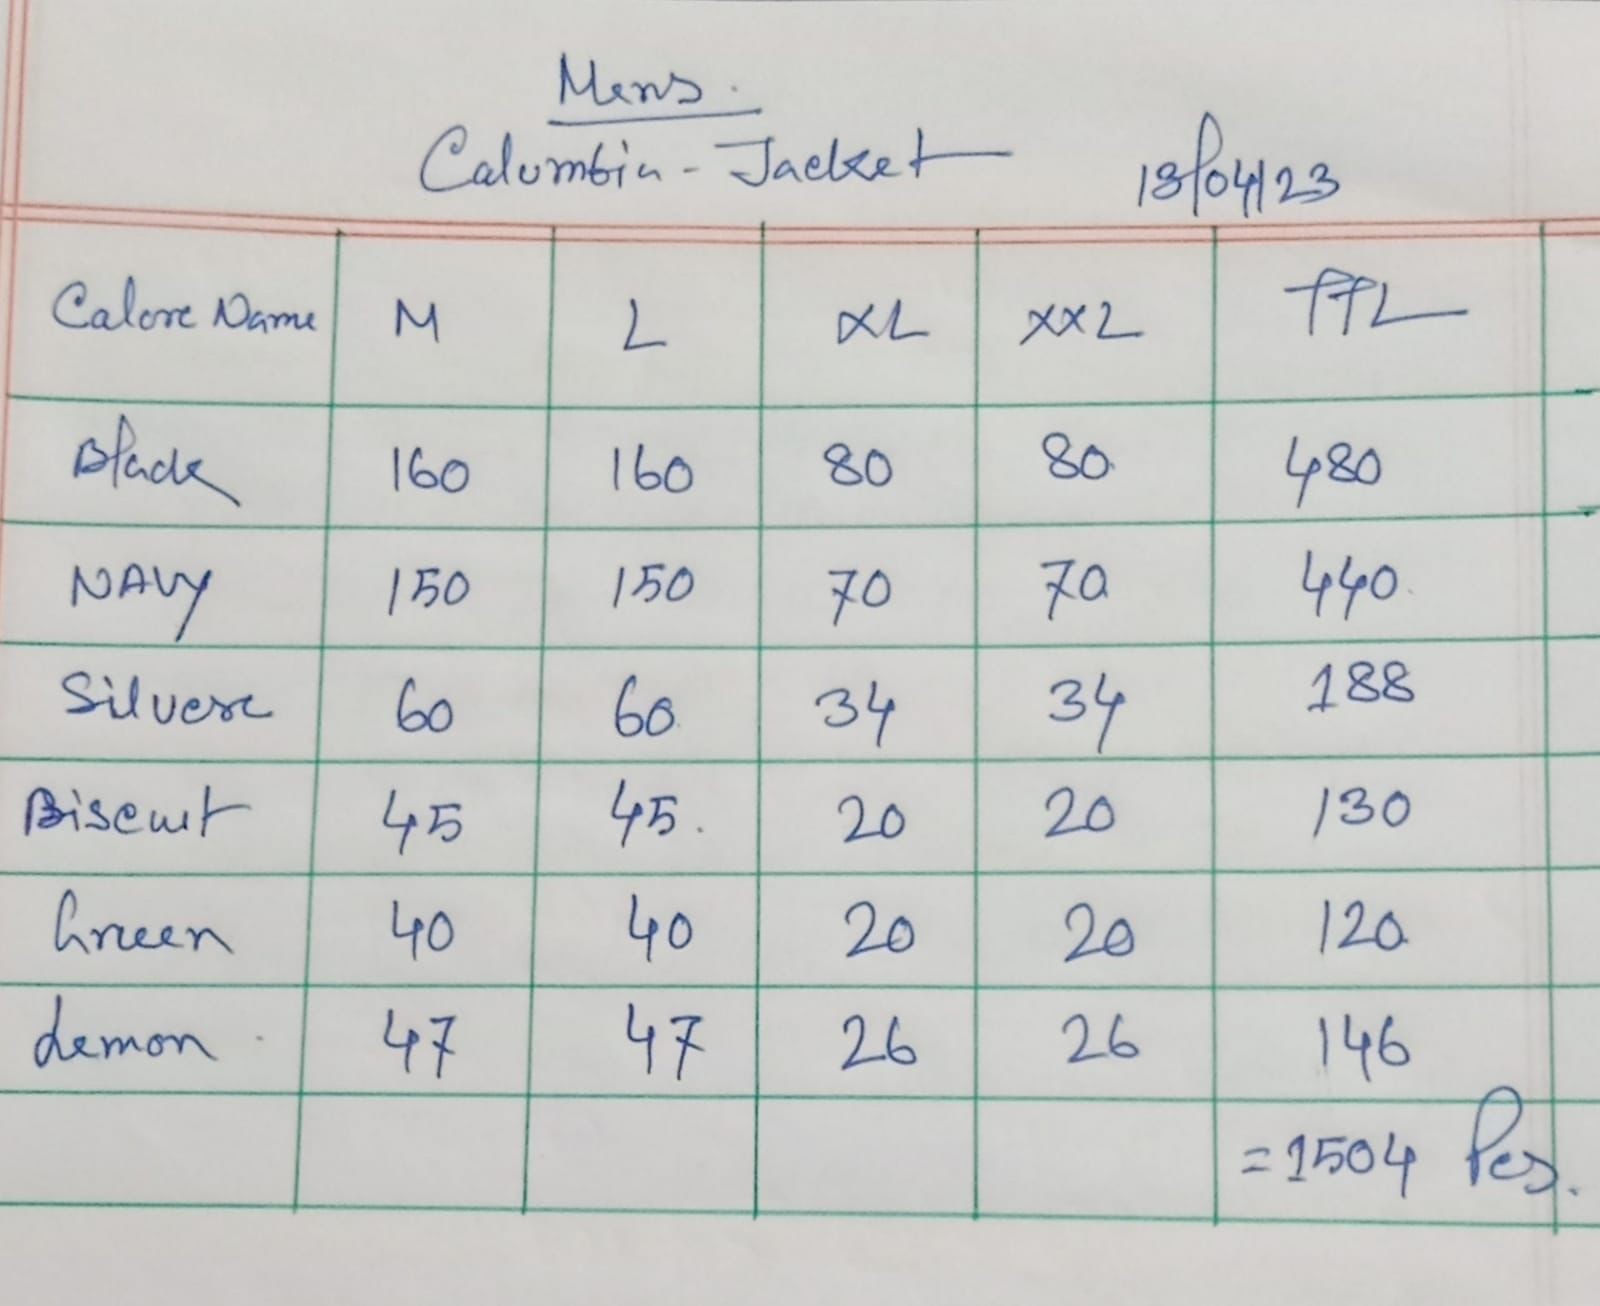 Mens.
Calumbia - Jacket 13/04/23
Calore Name M L XL XXL TTL
Black 160 160 80 80 480
NAVY 150 150 70 70 440
Silvere 60 60 34 34 188
Biscuit 45 45 20 20 130
Green 40 40 20 20 120
Lemon 47 47 26 26 146
=1504 Pcs.